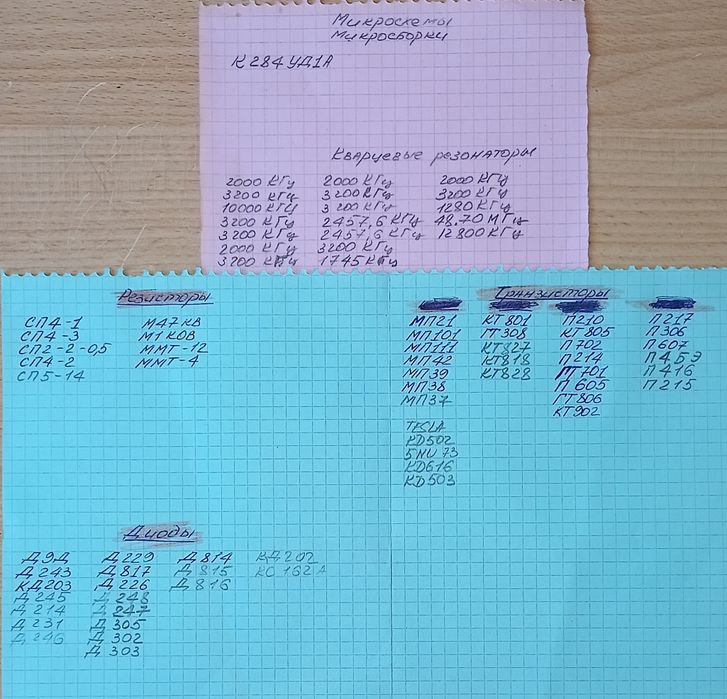 Микросхемы
Микросборки
К 284 УД1А
Кварцевые резонаторы
2000 КГц 2000 КГц 2000 КГц
3200 КГц 3200 КГц 3200 КГц
10000 КГц 3200 КГц 1280 КГц
3200 КГц 2457,6 КГц 48.70 МГц
3200 КГц 2457,6 КГц 12800 КГц
2000 КГц 3200 КГц
3200 КГц 1745 КГц
Резисторы
СП4-1 М47КВ
СП4-3 М1КОВ
СП2-2-0,5 ММТ-12
СП4-2 ММТ-4
СП5-14
Транзисторы
МП21 КТ801 П210 П217
МП101 ГТ308 КТ805 П306
МП111 КТ827 П702 П607
МП42 КТ818 П214 П4БЭ
МП39 КТ828 ГТ701 П416
МП38 П605 П215
МП37 ГТ806
КТ902
TESLA
KD502
5NU73
KD616
KD503
Диоды
Д9Д Д229 Д814 КД202
Д243 Д817 Д815 КС162А
КД203 Д226 Д816
Д245 Д248
Д214 Д247
Д231 Д305
Д246 Д302
Д303